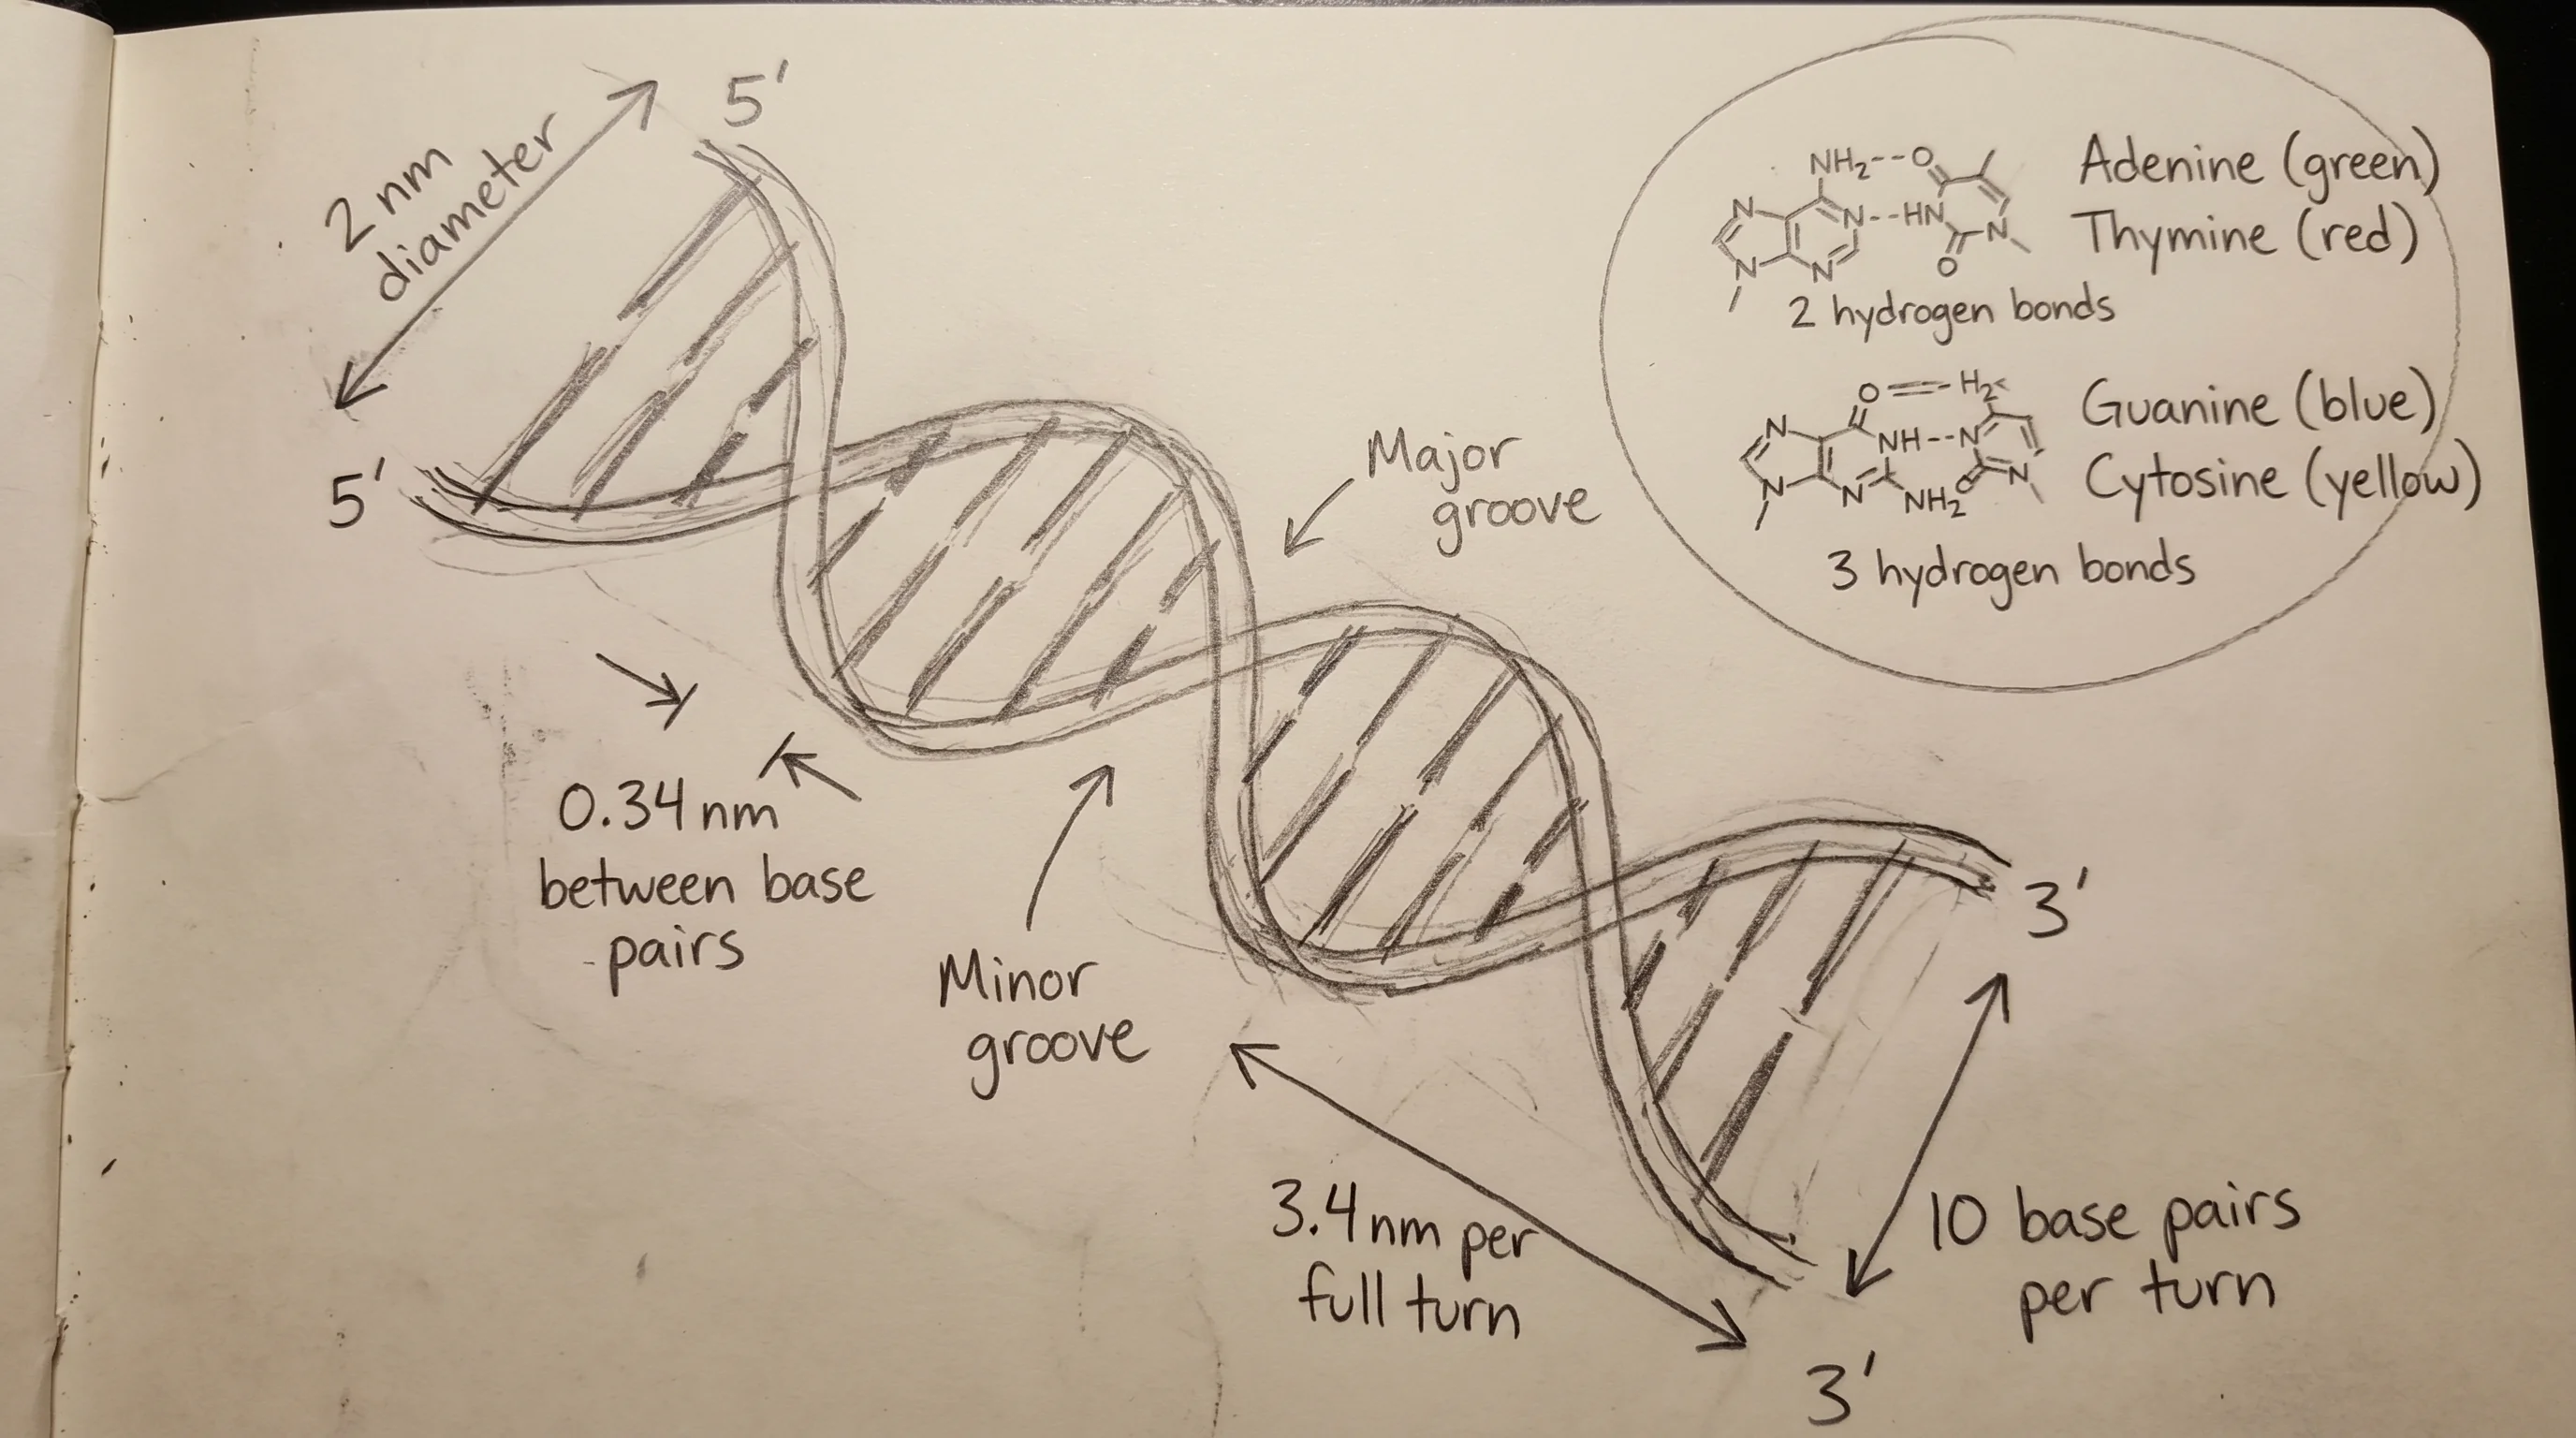 5'
2 nm
diameter
5'
NH₂--O
N
N--HN
N
N
N
O
Adenine (green)
Thymine (red)
2 hydrogen bonds
O
H₂
N
NH--N
N
N
NH₂
O
N
Guanine (blue)
Cytosine (yellow)
3 hydrogen bonds
Major
groove
0.34 nm
between base
pairs
Minor
groove
3'
3.4 nm per
full turn
10 base pairs
per turn
3'